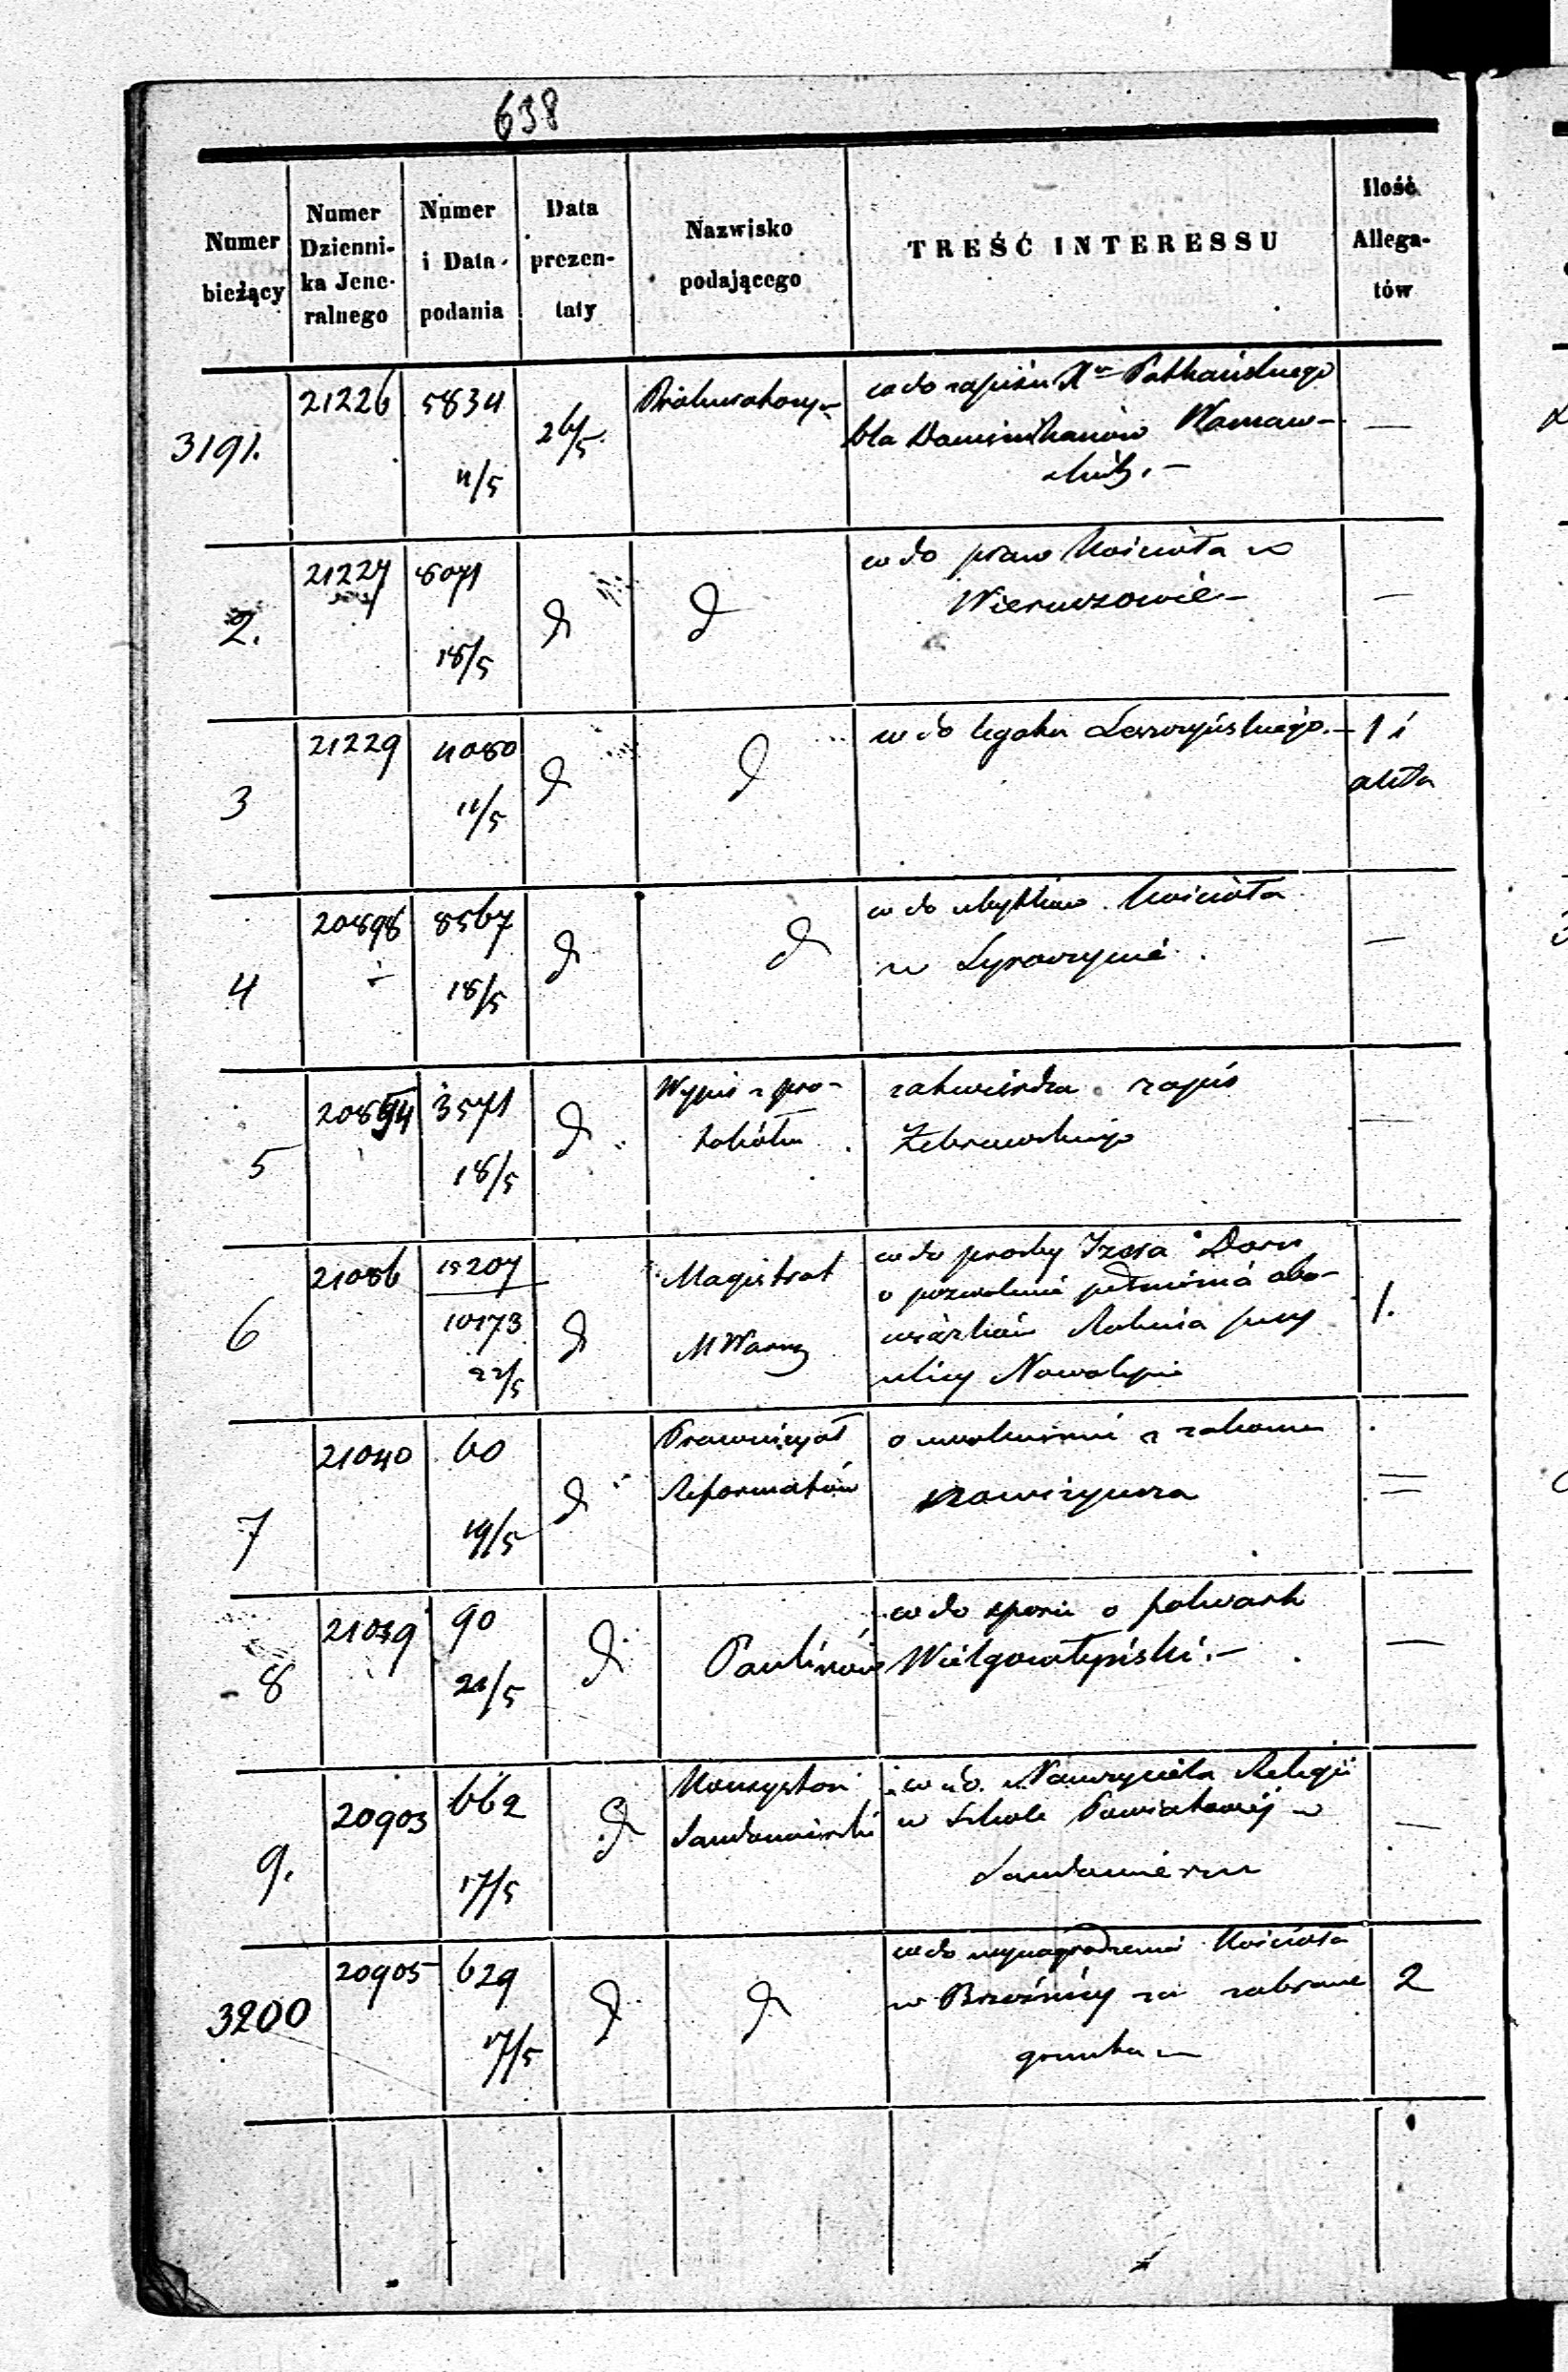 638
Numer bieżący
Numer Dzienni- ka Jene- ralnego
Numer i Data podania
Data prezen- taty
Nazwisko podającego
TREŚĆ INTERESSU
Ilość Allega- tów
3191. 21226 5834 11/5 26/5
co do zapisu Xa Patkańskiego
dla Dominikanów Warszaw-
skich. —
2. 21227 18/5 d d
co do praw Kościoła w
Wieruszowie — —
3 21229 4080 11/5 d d
co do legatu Leszczyńskiego. — 1 i
akta
4 20898 8567 18/5 d d
co do Kościoła —
w
5 20894 3571 18/5 d
Wypis z pro-
tokółu
zatwierdza zapis
Żebrowskiego —
6 21086 15207 10173 22/5 d
Magistrat
M Warszy
co do prosby Dawu
o pozwolenie pełnienia obo-
wiązków Rabina przy
ulicy Nowolipie
1.
7 21040 60 19/5 d
Prowincyał
Reformatów
o uwolnieniu z zakonu
nowicyusza
8 21039 90 21/5 d
Paulinów
co do sporu o folwark
—
9. 20903 662 17/5 d
Konsystorz
Sandomierski
co do Nauczyciela Religii
w Szkole Powiatowej w
Sandomierzu
—
3200 20905 629 17/5 d d
co do wynagrodzenia Kościoła
w Brzeźnicy za zabrane
grunta —
2